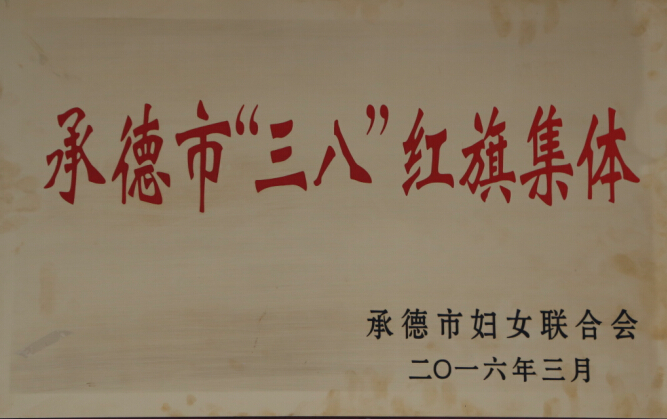 承德市“三八”红旗集体
承德市妇女联合会
二〇一六年三月